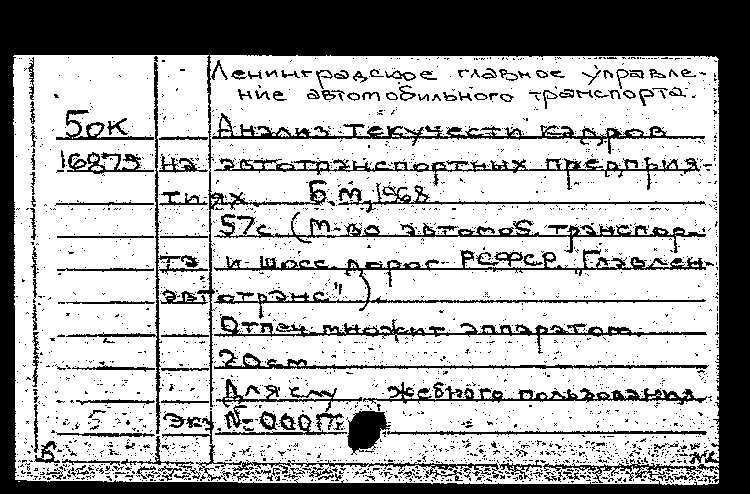 Ленинградское главное управле-
ние автомобильного транспорта.
Бок Анализ текучести кадров
на автотранспортных предприя-
тиях. Б.м., 1968
57с. (М-во автомоб. транспор-
та и шосс. дорог РСФСР. "Главлен-
автотранс").
Отпеч. множит. аппаратом.
20 см.
Для служебного пользования.
5 Экз. №